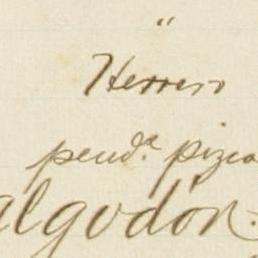 "
Herrero
pend.ª pizca
algodón.